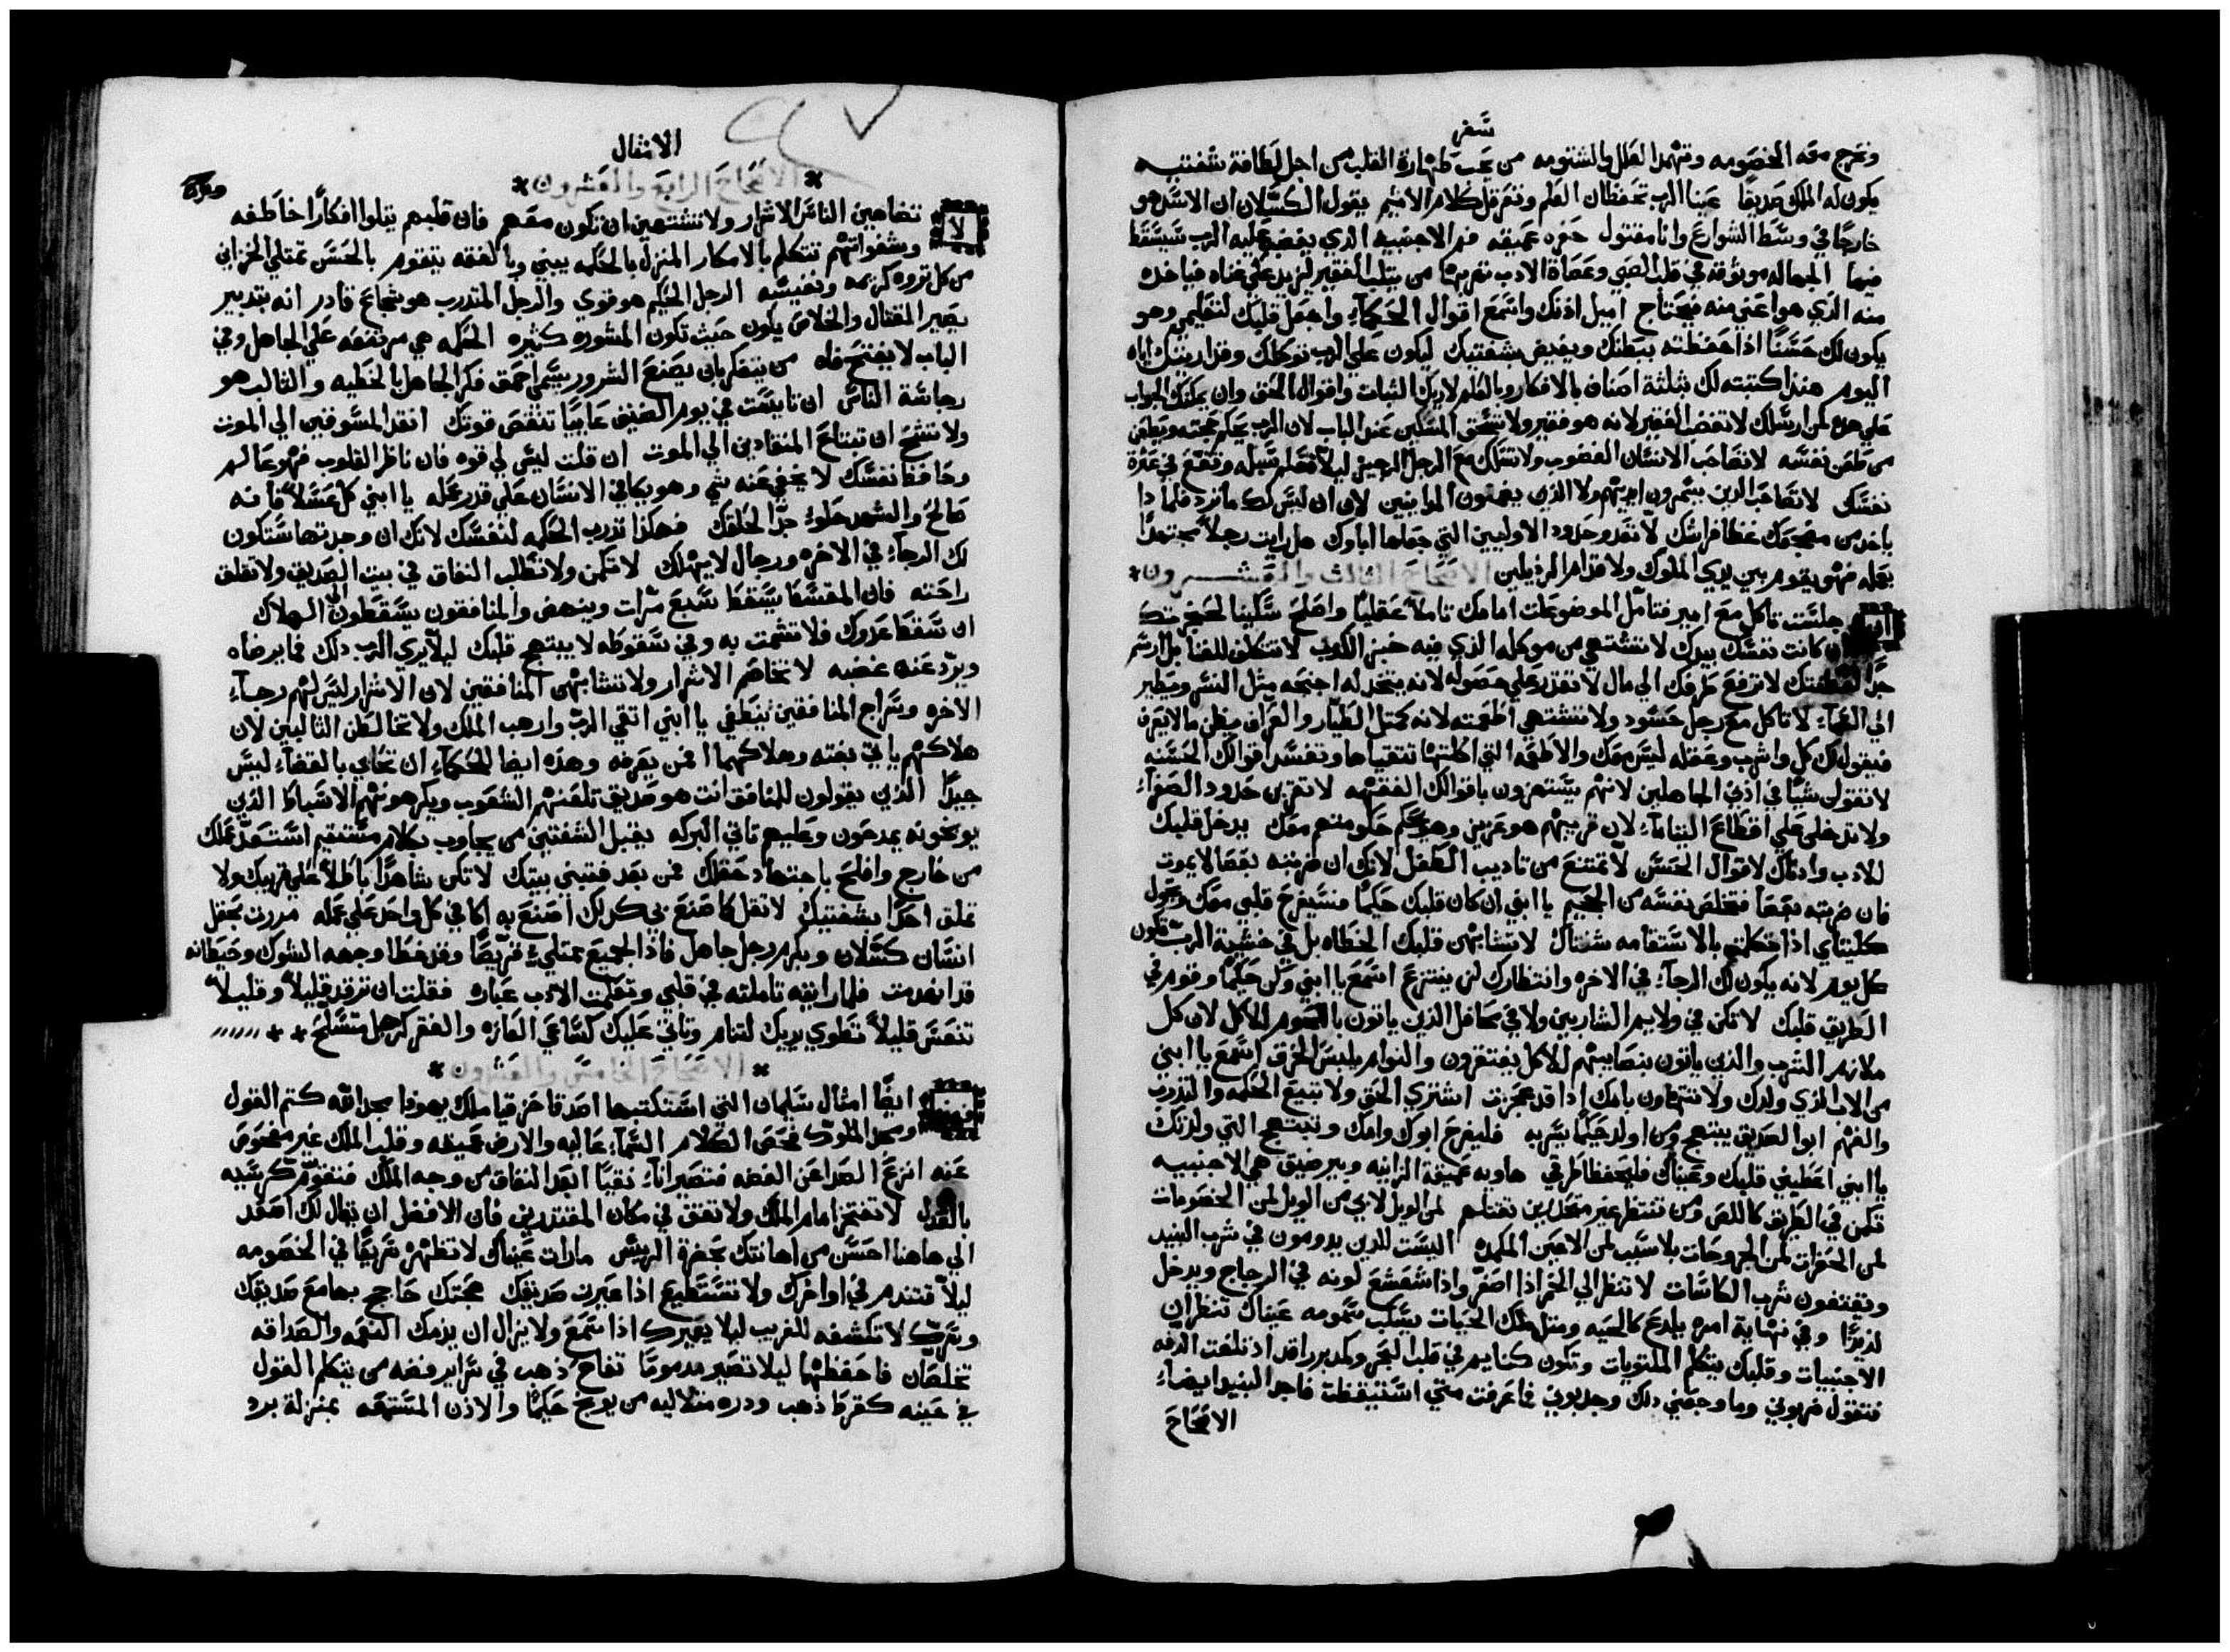 سفر
وتخرج معه الخصومه وتهدا العلل والشتومه من يحب طهارة القلب من اجل لطافة شفتيه
يكون له الملك صديقا عينا الرب تحفظان العلم وتفرقل كلام الاثيم يقول الكسلان ان الاسد هو
خارجا في وسط الشوارع وانا مقتول حفره عميقه فم الاجنبيه الذي يغضب عليه الرب سيسقط
فيها الجهاله موثوقه في قلب الصبي وعصاة الادب تفربها من يثلب الفقير ليزيد على غناه فياخذه
منه الذي هو اغني منه فيحتاج اميل اذنك واسمع اقوال الحكماء واجعل قلبك لتعليمي وهو
يكون لك حسنا اذا حفظته ببطنك ويفيض بشفتيك ليكون علي الرب توكلك وقد اريتك اياه
اليوم هنذا كتبته لك بثلثة اصناف بالافكار وبالعلم لاريك الثبات واقوال الحق وان يمكنك الجواب
علي هذه لمن ارسلك لا تغضب الفقير لانه هو فقير ولا تسحق المسكين عند الباب لان الرب يحكم بحجته ويطعن
من طعن نفسه لا تصاحب الانسان الغضوب ولا تسلك مع الرجل الرجيز ليلا تتعلم سبيله وتقع في عثرة
نفسك لا تصاحب الذين يسمرون ايديهم ولا الذين يضمنون الموازنين لان ان ليس لك ما ترد فلماذا
ياخذ من مضجعك غطا فراشك لا تتعد وحدود الاوليين التي جعلها اباوك هل رايت رجلا مجتهدا
بعمله فهو يقوم بين يدي الملوك ولا قدام الرذيلين الاصحاح الثالث والعشرون *
اذا جلست تاكل مع امير فتامل الموضوعات امامك تاملا عقليا واصلح سكينا لحنجرتك
ان كانت نفسك بيدك لا تشتهي من موكله الذي فيه خبز الكدب لا تتكلف للغنا بل ارسم
حدا لفطنتك لا ترفع طرفك الي مال لا تقدر علي حصوله لانه يتخذ له اجنحه مثل النسر ويطير
الي السماء لا تاكل مع رجل حسود ولا تشتهي اطعمته لانه كمثل الطيار والعراف يظن ما لا يعرف
فيقول لك كل واشرب وعقله ليس معك والاطعمه التي اكلتها تتقياها وتفسد اقوالك الحسنه
لا تقول شيا في اذني الجاهلين لانهم يستهزون باقوالك الفقهيه لا تقربن حدود الصغراء
ولا تدخل علي اقطاع اليتاماء لان قريبهم هو عزيز وهو يحكم حكومتهم معك يدخل قلبك
للادب واذناك لاقوال الحسن لا تمتنع من تاديب الطفل لانك ان ضربته بعصا لا يموت
فان ضربته بعصا فتخلص نفسه من الجحيم يا ابني ان كان قلبك حكيما فسيفرح قلبي معك وتهول
كليتاي اذا تكلمتا بالاستقامه شفتاك لا تتشابهن قلبك الخطاه بل في خشية الرب تكون
كل يوم لانه يكون لك الرجاء في الاخره وانتظارك لن ينتزع اسمع يا ابني وكن حكيما وقوم في
الطريق قلبك لا تكن في ولايم الشاربين ولا في محافل الذين ياتون باللحوم للاكل لان كل
ملازم الشرب والذين ياتون بنصايبهم للاكل يفتقرون والنوام يلبس الخرق اسمع يا ابني
من الاب الذي ولدك ولا تتهاون بامك اذا قد عجزت اشتري الحق ولا تبيع الحكمه والتدرب
والفهم ابو الصديق يبتهج ومن اولد حكيما يسر به فليفرح ابوك وامك وتبتهج التي ولدتك
يا ابني اعطيني قلبك وعيناك فليحفظا طرقي هاويه عميقة الزانيه وبير ضيق هي الاجنبيه
تكمن في الطريق كاللص ومن تنتظر غير متحذرين تقتلهم لمن الويل لابي من الويل لمن الخصومات
لمن الحفرات لمن الجروحات بلا سبب لمن الاعين المكمده اليست للذين يدومون في شرب النبيد
ويقتفون شرب الكاسات لا تنظر الي الخمر اذا اصفر واذا شعشع لونه في الزجاج ويدخل
لذيذا وفي نهاية امره يلدغ كالحيه ومثل ملك الحيات يسكب سمومه عيناك تنظران
الاجنبيات وقلبك يتكلم الملتويات وتكون كنايم في قلب البحر وكمدبر راقد اذ تلفت الدفه
فتقول ضربوني وما وجعني ذلك وجذبوني فما عرفت متي استيقظت فاجد النبيد ايضاء
الاصحاح
الامثال
* الاصحاح الرابع والعشرون *
لا تضاهين الناس الاشرار ولا تشتهين ان تكون معهم فان قلبهم يتلوا افكارا خاطفه
وشفواتهم تتكلم بالامكار المنزل بالحكمه يبني وبالفقه يتقوم بالحسن تمتلي الخزاين
من كل ثروه كريمه ونفيسه الرجل الحكيم هو قوي والرجل المتدرب هو شجاع قادر انه بتدبير
يصير القتال والخلاص يكون حيث تكون المشوره كثيره الحكمه هي مرتفعه علي الجاهل وفي
الباب لا يفتح فاه من يتفكر بان يصنع الشرور يسمي احمق فكر الجاهل بالخطيه والثالب هو
رجاسة الناس ان تايست في يوم الضيق عايبا تنقص قوتك انقد المسوقين الي الموت
ولا تشح ان تفتاح المنقادين الي الموت ان قلت ليس لي قوه فان ناظر القلوب فهو عالم
وحافظ نفسك لا يخفي عنه شي وهو يكافي الانسان علي قدر عمله يا ابني كل عسلا فانه
صالح والشهد حلو جدا لحلقك فهكذا تدرب الحكمه لنفسك لانك ان وجدتها ستكون
لك الرجاء في الاخره ورجال لا يهلك لا تكمن ولا تطلب النفاق في بيت الصديق ولا تقلق
راحته فان المقسقا يسقط سبع مرات وينهض والمنافقون يسقطون الي الهلاك
ان سقط عدوك فلا تشمت به وفي سقوطه لا يبتهج قلبك ليلا يري الرب ذلك فما يرضاه
ويرد عنه غضبه لا تخاصم الاشرار ولا تتشابهن المنافقين لان الاشرار ليس لهم رجاء
الاخره وسراج المنافقين ينطفي يا ابني اتقي الرب وارهب الملك ولا تخالطن الثالبين لان
هلاكهم ياتي بغته وهلاكهما فمن يعرفه وهذه ايضا للحكماء ان تحابي بالقضاء ليس
جيدا الذين يقولون للمنافق انت هو صديق تلعنهم الشعوب ويكرهونهم الاسباط الذين
يوبخونه يمدحون وعليهم تاتي البركه يقبل الشفتين من يجاوب بكلام مستقيم استعد عملك
من خارج وافلح باجتهاد حقلك فمن بعد فتبني بيتك لا تكن شاهدا باطلا علي قريبك ولا
تملق احدا بشفتيك لا تقل كما صنع بي كذلك اصنع به اكافي كل واحد علي عمله مررت بحقل
انسان كسلان وبكرم رجل جاهل فاذا الجميع ممتلي قريصا وقد غطا وجهه الشوك وحيطانه
قد انهدمت فلما رايته تاملته في قلبي وتعلمت الادب عباره فقلت ان ترقد قليلا وقليلا
تنعس قليلا تطوي يديك لتنام وتاتي عليك كساعي الفازه والفقر كرجل متسلح * *
* الاصحاح الخامس والعشرون *
وهذه ايضا امثال سليمان التي استكتبها اصدقا حزقيا ملك يهوذا مجد الله كتم القول
ومجد الملوك فحص الكلام السماء عاليه والارض عميقه وقلب الملك غير مفحوص
عنه انزع الصدا عن الفضه فتصير اناء نقيا ابعد النفاق من وجه الملك فتقوم كرسيه
بالعدل لا تفتخر امام الملك ولا تقف في مكان المقتدرين فان الافضل ان يقال لك اصعد
الي هاهنا احسن من اهانتك بحضرة الرييس ما رات عيناك لا تظهره سريعا في الخصومه
ليلا تتندم في اواخرك ولا تستطيع اذا عيرت صديقك حجتك حاجج بها مع صديقك
وسرك لا تكشفه للغريب ليلا يعيرك اذا سمع ولا يزال ان يذمك النعمه والصداقه
تخلصان فاحفظهما ليلا تصير مدموما تفاح ذهب في سراير فضه من يتكلم القول
في حينه كقرط ذهب ودره متلاليه من يوبخ حكيما والاذن المستمعه بمنزلة برد